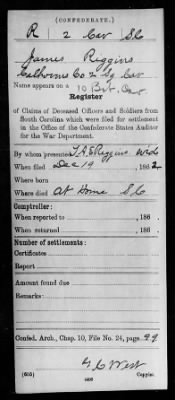 (CONFEDERATE.)
R 2 Cav SC
James Riggins
Calhoun's Co 2 Sq Cav
Name appears on a 10 Bat. Cav
Register
of Claims of Deceased Officers and Soldiers from
South Carolina which were filed for settlement
in the Office of the Confederate States Auditor
for the War Department.
By whom presented Riggins wid
When filed Dec 19, 1862
Where born
Where died At Home S.C.
Comptroller:
When reported to , 186 .
When returned , 186 .
Number of settlements:
Certificates
Report
Amount found due
Remarks:
Confed. Arch., Chap. 10, File No. 24, page 99
G C West
(635) Copyist.